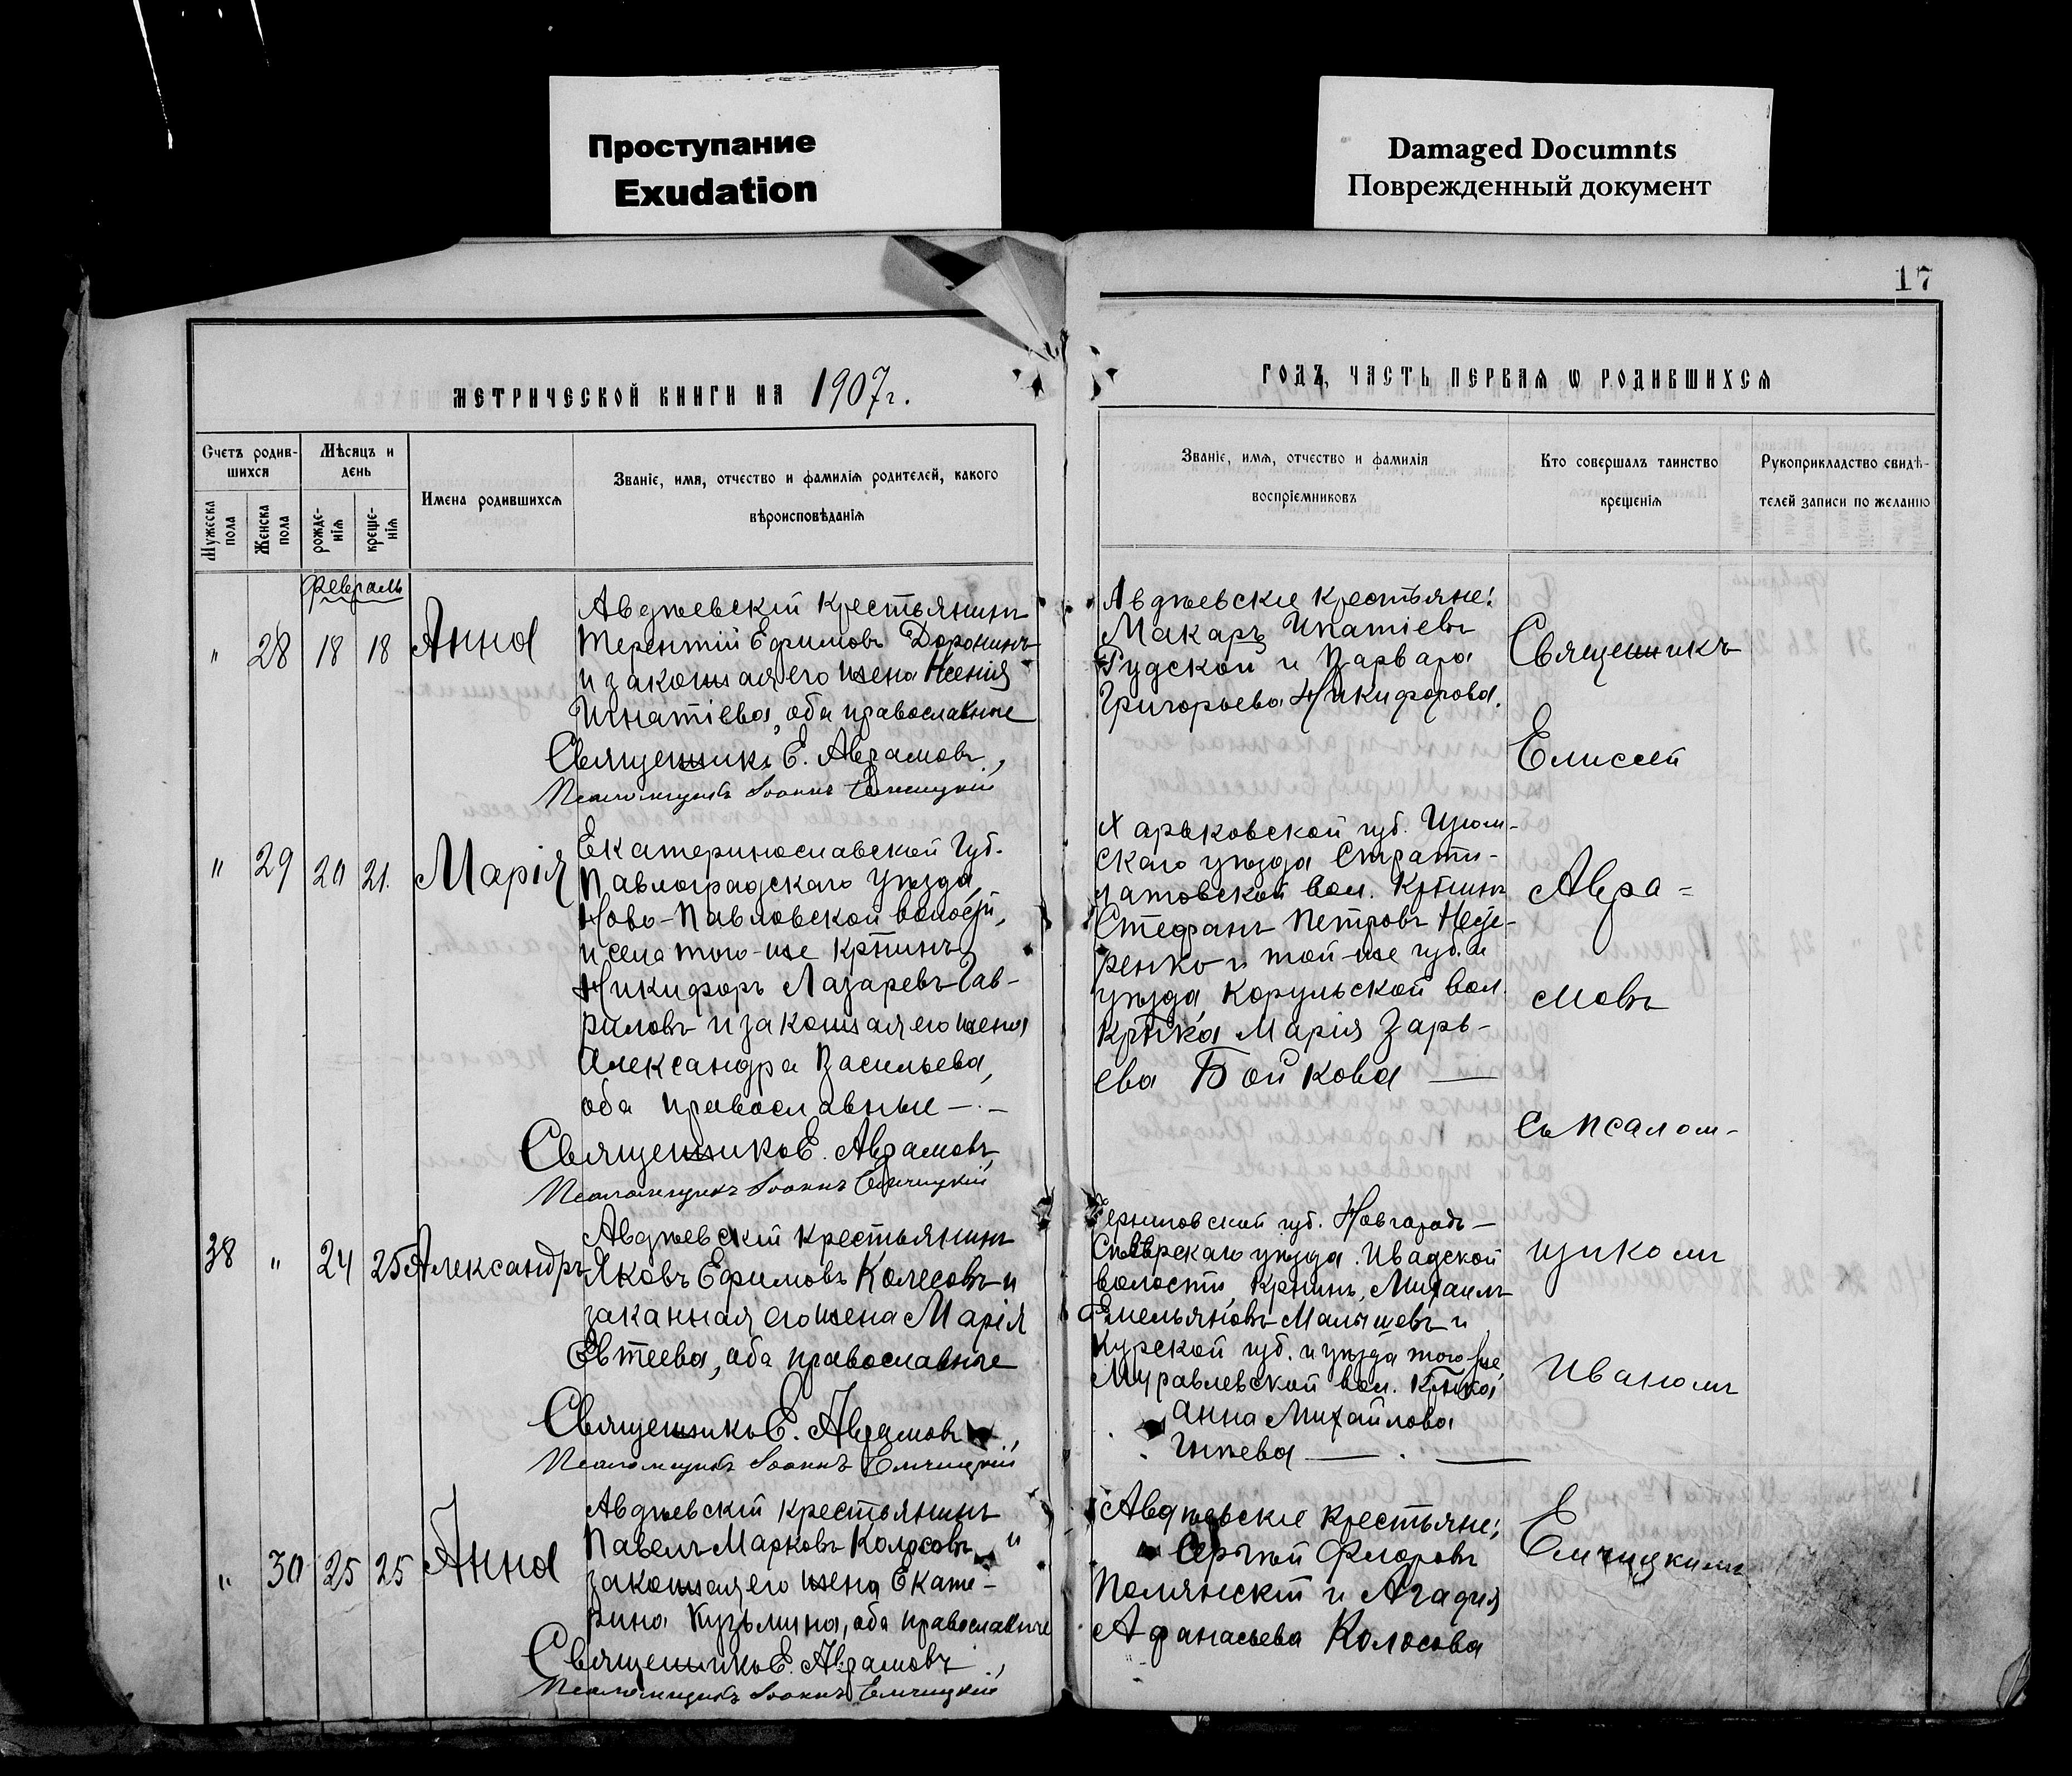 Проступание
Exudation
Damaged Documnts
Поврежденный документ
17
МЕТРИЧЕСКОЙ КНИГИ НА 1907г.
ГОДЪ, ЧАСТЬ ПЕРВАЯ Ѡ РОДИВШИХСЯ
Счетъ родив-
шихся
Мѣсяцъ и
день
Мужеска
пола
Женска
пола
рожде-
нія
креще-
нія
Имена родившихся
Званіе, имя, отчество и фамилія родителей, какого
вѣроисповѣданія
Званіе, имя, отчество и фамилія
воспріемниковъ
Кто совершалъ таинство
крещенія
Рукоприкладство свидѣ-
телей записи по желанію
Февраль
" 28 18 18 Анна
Авдѣевскій крестьянинъ
Терентій Ефимовъ Доронинъ
и законная его жена Ксенія
Игнатіева, оба православные
Священникъ Е. Аврамовъ
Псаломщикъ Іоаннъ Емчицкій
Авдѣевскіе крестьяне:
Макаръ Ипатіевъ
Гудской и Варвара
Григорьева Никифорова.
" 29 20 21. Марія
Екатеринославской Губ.
Павлоградскаго уѣзда,
Ново-Павловской волости,
и села того-же крѣтинъ
Никифоръ Лазаревъ Гав-
риловъ и законная его жена
Александра Васильева,
оба православные —
Священникъ Е. Аврамовъ
Псаломщикъ Іоаннъ Емчицкій
Харьковской губ. Изюм-
скаго уѣзда
вол.
Стефанъ Петровъ
и той-же губ. и
уѣзда вол.
Марія Заръ-
ева Бойкова —
38 " 24 25 Александръ
Авдѣевскій крестьянинъ
Яковъ Ефимовъ Колесовъ и
законная его жена Марія
Евтеева, оба православные
Священникъ Е. Аврамовъ
Псаломщикъ Іоаннъ Емчицкій
Черниговской губ. Новгородъ-
Сѣверскаго уѣзда. Ивадской
волости Михаилъ
Емельяновъ Малышевъ и
Курской губ. и уѣзда того-же,
Муравлевской вол.
Анна Михайлова
" 30 25 25 Анна
Авдѣевскій крестьянинъ
Павелъ Марковъ Колосовъ и
законная его жена Екате-
рина Кузьмина, оба православные
Священникъ Е. Аврамовъ
Псаломщикъ Іоаннъ Емчицкій
Авдѣевскіе крестьяне:
Сергѣй Флоровъ
Полянскій и Агафія
Афанасьева Колосова
Священникъ
Елисей
Авра=
мовъ
съ псалом-
щикомъ
Иваномъ
Емчицкимъ